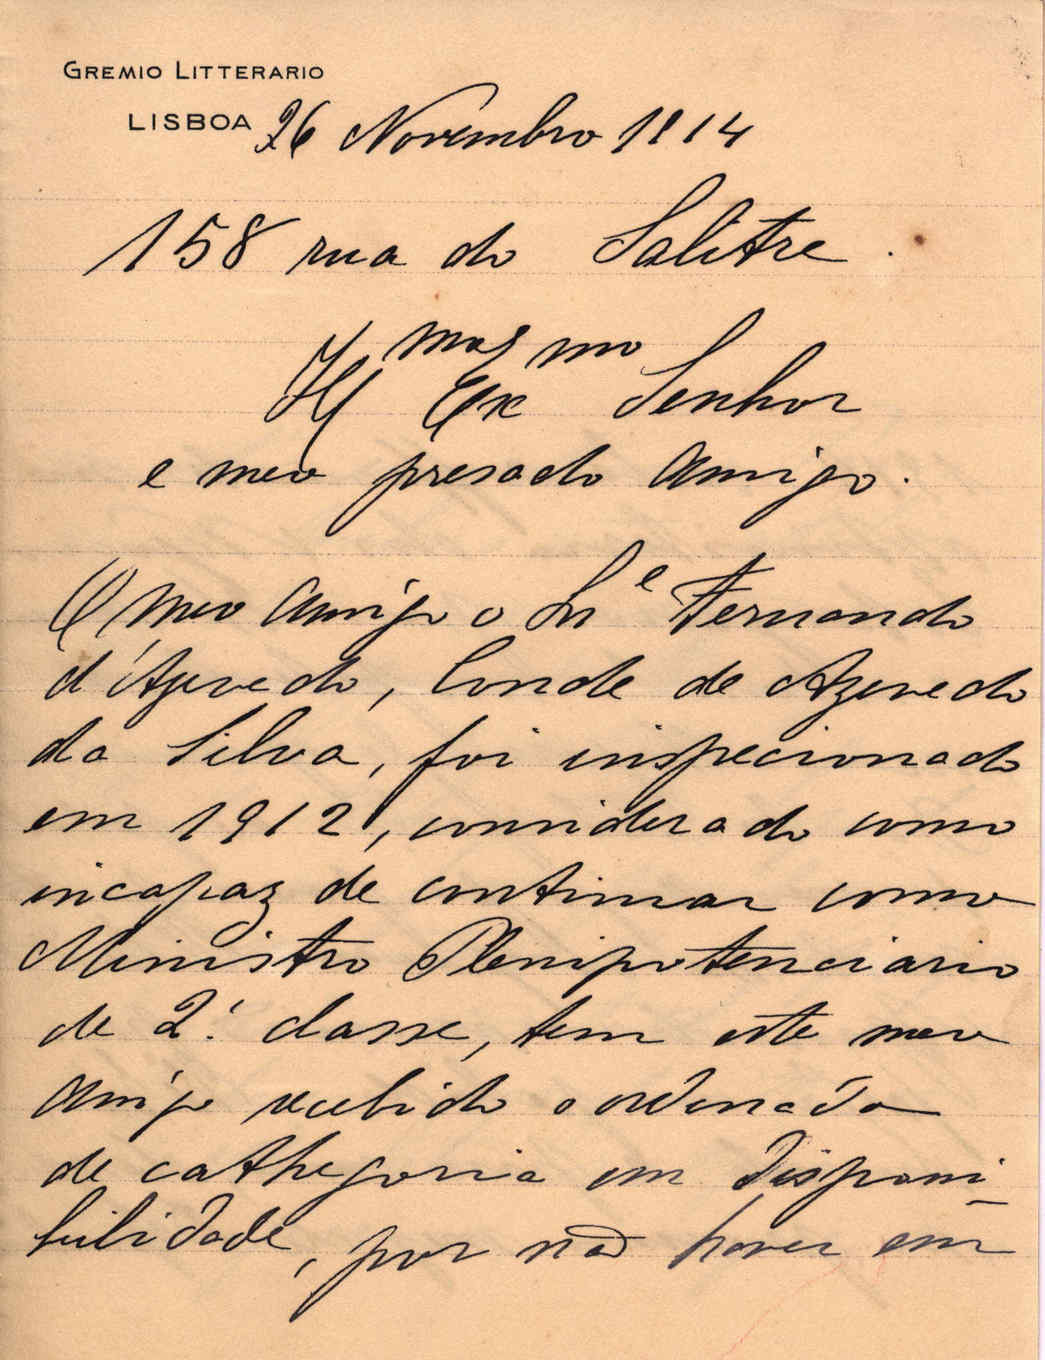 GREMIO LITTERARIO
LISBOA 26 Novembro 1914
158 rua do Salitre.
Ill^mo Ex^mo Senhor
e meu presado amigo.
O meu amigo o Sn^e Fernando
d'Azevedo, Conde de Azevedo
da Silva, foi inspecionado
em 1912, considerado como
incapaz de continuar como
Ministro Plenipotenciario
de 2.ª classe, tem este meu
amigo recebido o ordenado
de cathegoria em disponi-
bilidade, por não haver em